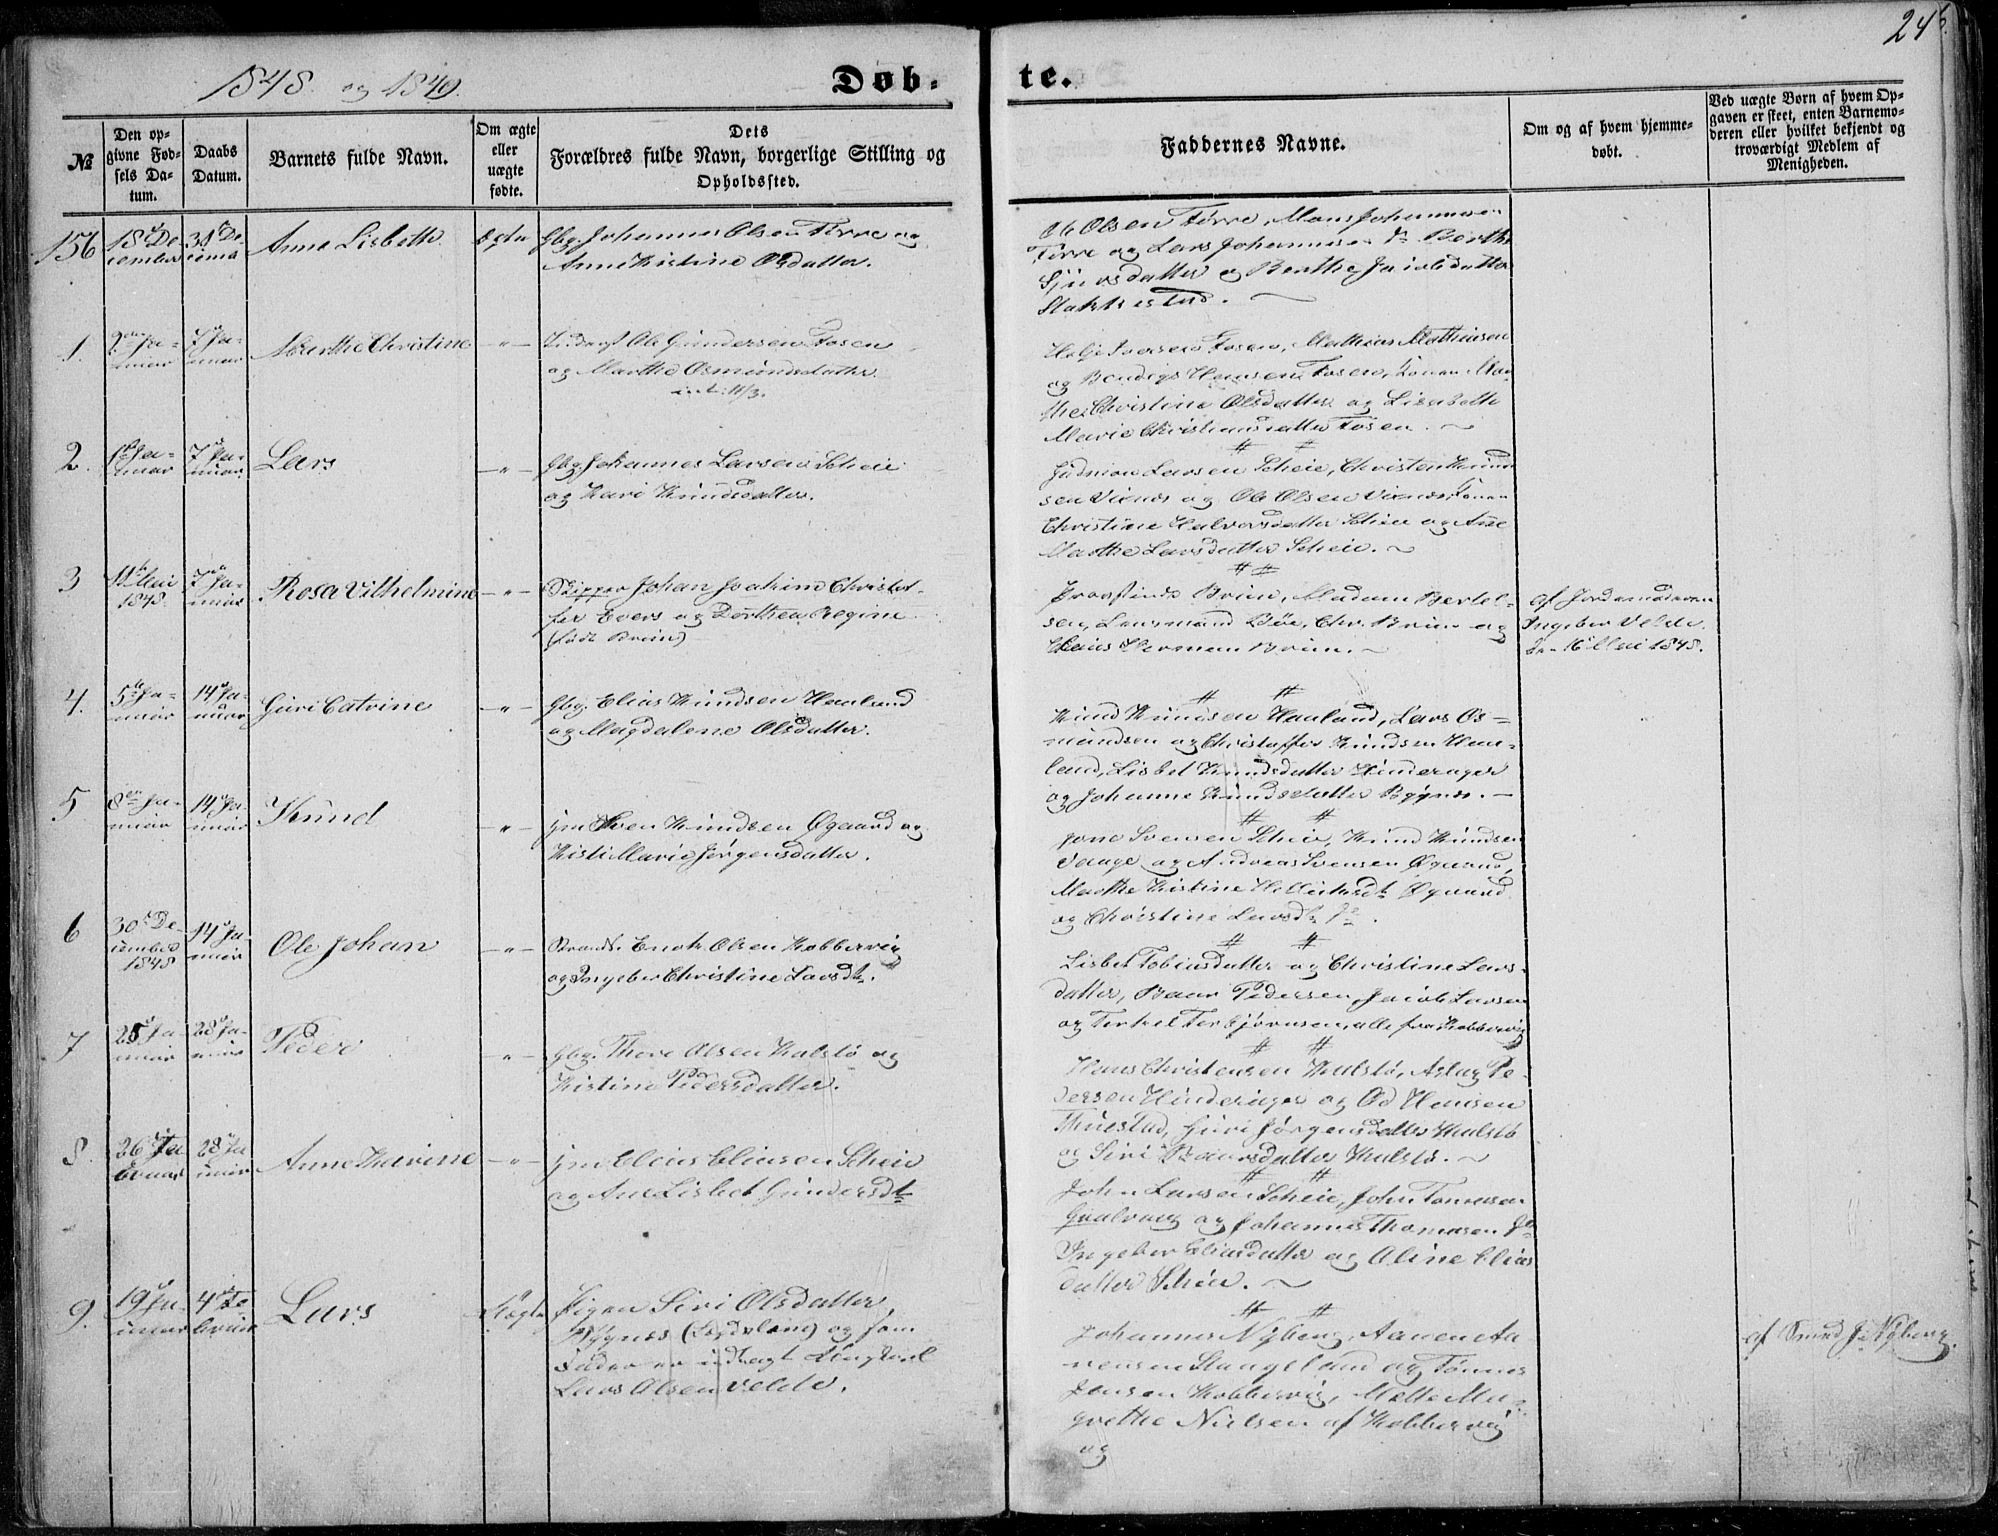 246.
1848. og 1849.
Døb-
te.
№
Den op-
givne Fød-
sels Da-
tum.
Daabs
Datum.
Barnets fulde Navn.
Om ægte
eller
uægte
fødte.
Dets
Forældres fulde Navn, borgerlige Stilling og
Opholdssted.
Faddernes Navne.
Om og af hvem hjemme-
døbt.
Ved uægte Børn af hvem Op-
gaven er skeet, enten Barnemo-
deren eller hvilket bekjendt og
troværdigt Medlem af
Menigheden.
156
18de De-
cember
31 De-
cemb
Anne Lisbeth
Ægte
Gbg. Johannes Olsen Førre og
Anne Kistine Olsdatter.
Ole Olsen Førre, Mons Johannesen
Førre og Lars Johannesen do Berthe
Sjursdatter og Berthe Jacobsdatter
Stakkestad.
1.
2den Ja-
nuar
7de Ja-
nuar
Marthe Christine
-"-
Inderst Ole Gundersen Fosen
og Marthe Osmundsdatter.
int: 11/3.
Helje Iversen Fosen, Mathias Mathiasen
og Bendigs Hansen Fosen, Konen Mar-
the Christine Olsdatter og Lisabeth
Marie Christiansdatter Fosen.
2.
1ste Ja-
nuar
7de Ja-
nuar.
Lars
-"-
Gbg. Johannes Larsen Scheie
og Kari Knudsdatter.
Gudmon Larsen Scheie, Christen Knud-
sen Vixnes og Ole Olsen Vixnes, Konen
Christine Halvorsdatter Scheie og Ane
Marthe Larsdatter Scheie.
3
11te Mai
1848.
7de Ja-
nuar
Rosa Vilhelmine
-"-
Skipper Johan Joakim Christof-
fer Evers og Dorthea Regine
(født Bruun)
Provstinde Bruun, Madam Bertel-
sen, Lensmand Bøe, Chr. Bruun og
Claus Herman Bruun.
af Jordemoderen
Ingeber Velde.
den 16 Mai 1848.
4.
5te Ja-
nuar
14de Ja-
nuar
Guri Catrine
-"-
Gbg. Elias Knudsen Hauland
og Magdalene Olsdatter.
Knud Knudsen Hauland, Lars Os-
mundsen og Christoffer Knudsen Hau-
land, Lisbet Knudsdatter Hinderager
og Johanne Knudsdatter Bygnes.
5
8en Ja-
nuar
14de Ja-
nuar
Knud
-"-
Hmd Sven Knudsen Øgaard og
Kisti Marie Jørgensdatter.
Jone Svensen Scheie, Knud Knudsen
Vaage og Andreas Svensen Øgaard,
Marthe Kistine Øgaard
og Christine Larsdtr do.
6
30te De-
cember
1848
14de Ja-
nuar
Ole Johan
-"-
Strands. Enok Olsen Kobbervig
og Ingeber Christine Larsdtr.
Lisbet Tobiasdatter og Christine Lars-
datter, Baar Pedersen, Jacob Larsen
og Terkel Terbjørnsen, alle fra Kobbervig
7
25de Ja-
nuar
28de Ja-
nuar
Peder
-"-
Gbg. Thore Olsen Kalstø og
Kistine Pedersdatter.
Hans Christensen Kalstø, Aslag Pe-
dersen Hinderager og Od Hansen
Thuestad, Guri Jørgensdatter Kalstø
og Siri Baarsdatter Kalstø.
8.
26de Ja-
nuar
28de Ja-
nuar
Anne Karine
-"-
Hmd Elias Eliasen Scheie
og Ane Lisbet Gundersdtr
John Larsen Scheie, John Tomesen
og Johannes Thomasen do
Ingeber Eliasdatter og Aline Elias
datter Scheie.
9.
19de Ja-
nuar
4de Fe-
bruar
Lars
Uægte
Pigen Siri Olsdatter
Bygnes og som
Fader er udlagt Ungkarl
Lars Olsen Velde.
Johannes Nyberg, Aanen Aa-
nensen Stangeland og Tønnes
Jensen Kobbervig, Mette Ma-
grethe Nielsen af Kobbervig
og
af Smed J. Nyberg.